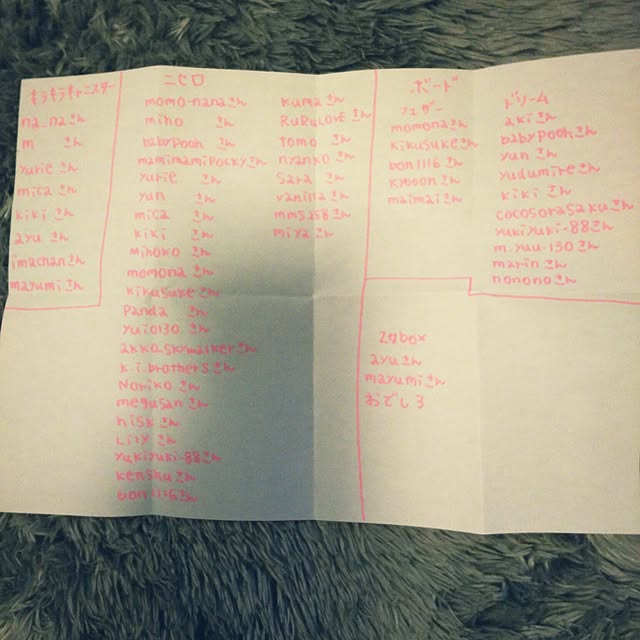 キラキラキャニスター
na.naさん
m さん
yurieさん
micaさん
kikiさん
ayuさん
imachanさん
mayumiさん
ニセロ
momo-nanaさん
miho さん
babypooh さん
mamimamipockyさん
yurie さん
yun さん
mica さん
kiki さん
mihoko さん
momona さん
kikusukeさん
panda さん
yui0130 さん
akka.skywalkerさん
k.i.brothersさん
Norikoさん
megusanさん
hiskさん
Lilyさん
yukiyuki-88さん
kenshuさん
bon1116さん
kumaさん
RuRuLOVEさん
tomo さん
nyankoさん
sara さん
vanillaさん
mms258さん
miyaさん
ボード
momonaさん
kikusukeさん
bon1116さん
kyoonさん
maimaiさん
ドリーム
akiさん
babypoohさん
yunさん
yudumireさん
kikiさん
cocosorasakuさん
yukiyuki-88さん
m.yuu-130さん
marinさん
nononoさん
ayuさん
mayumiさん
おでしろ